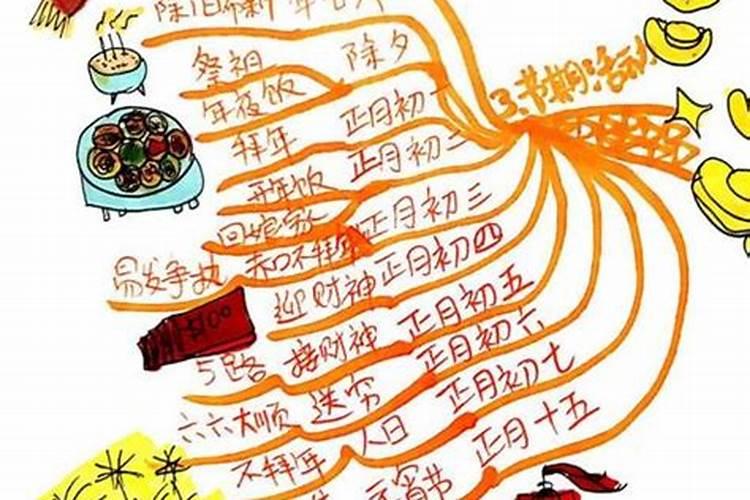 3.节期活动
除夕
祭祖
年夜饭
正月初一
拜年
正月初二
开年饭
回娘家
正月初三
赤口不拜年
易发争执
正月初四
迎财神
$100
正月初五
接财神
5路
正月初六
送穷
六六大顺
正月初七
人日
不拜年
正月十五
元宵节